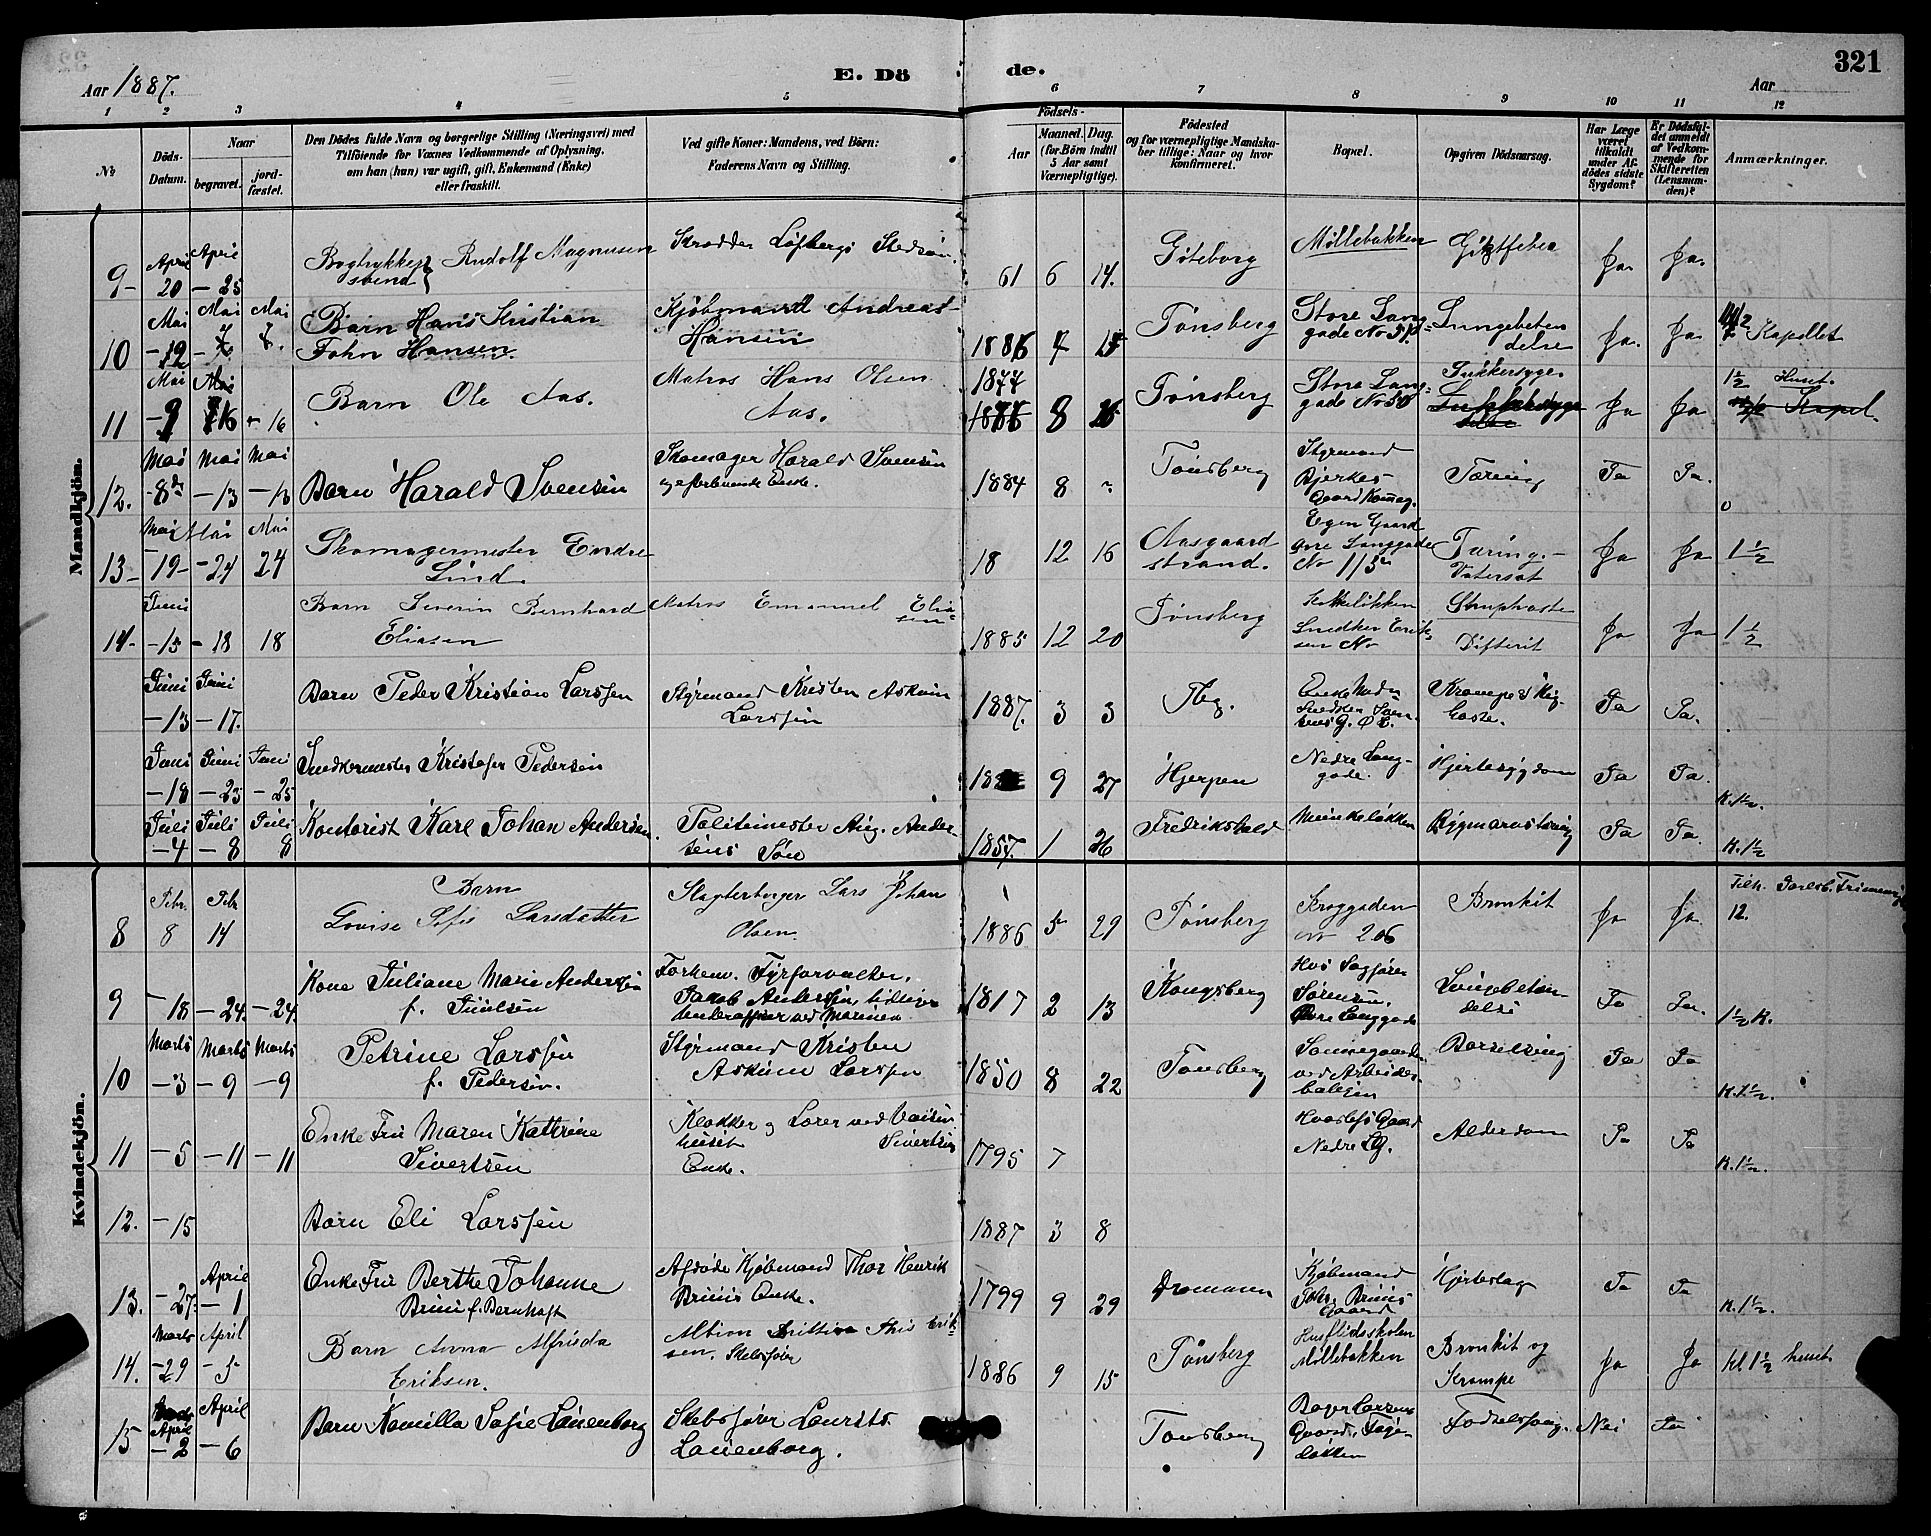 Aar 1887.
E. Dö
de.
Aar
321
1 2 3 4 5 6 7 8 9 10 11 12
No
Döds-Datum.
Naar
begravet.
jord-fæstet.
Den Dödes fulde Navn og borgerlige Stilling (Næringsvei) med
Tilföiende for Voxnes Vedkommende af Oplysning,
om han (hun) var ugift, gift, Enkemand (Enke)
eller fraskilt.
Ved gifte Koner: Mandens, ved Börn:
Faderens Navn og Stilling.
Födsels-
Aar
Maaned. Dag.
(for Börn indtil
5 Aar samt
Værnepligtige).
Födested
og for værnepligtige Mandska-
ber tillige: Naar og hvor
konfirmeret.
Bopæl.
Opgiven Dödsaarsag.
Har Læge
været
tilkaldt
under Af-
dödes sidste
Sygdom?
Er Dödsfal-
det anmeldt
af Vedkom-
mende for
Skifteretten
(Lensman-
den)?
Anmærkninger.
Mandkjön.
9 April 20 April 25 Bogtrykker svend Rudolf Magnusen Skrædder Løfbergs Stedsøn. 61 6 14. Gøteborg Møllebakken Ja. Ja.
10 Mai Mai Mai 8. Barn Hans Kristian
John Hansen. Kjøbmand Andreas
Hansen 4 Tønsberg Store Lang-
gade No Lungebeten
delse Ja. Ja Kapellet
11 Mai Mai 16 - 16 Barn Ole Aas. Matros Hans Olsen
Aas. 1877 8 Tønsberg Store Lang-
gade No 50 Sukkersyge Ja Ja 1½ Huset.
12. Mai - 8de Mai - 13 Mai - 13 Barn Harald Svensen Skomager Harald Svensen
og efterlevende Enke. 1884 8 Tønsberg Styrmand
Bjerkes
Gaard Tæring Ja Ja. 0
13 Mai 19 Mai 24 Mai 24 Skomagermester Endre
Lind. 18 12 16 Aasgaard
strand. Egen Gaard
Langgade
No 115 Tæring
Vatersot Ja Ja 1½
14. Juni - 15 - 18 18 Barn Severin Bernhard
Eliasen Matros Emanuel Elia
sen 1885 12 20 Tønsberg
Snedker Erik-
sen No Strubhoste
Difterit Ja Ja 1½
Juni - 13 Juni - 17. Barn Peder Kristian Larssen Styrmand Kristen Askim
Larssen 1887. 3 3 Tbg. Krampe & Kig-
hoste. Ja Ja.
Juni - 18 Juni - 25 Juni - 25 Snedkermester Kristofer Pedersen 9 27 Hjerpen Nedre Lang-
gade. Hjertesygdom Ja Ja. K. 1½.
Juli - 4 Juli - 8 Juli 8 Kontorist Karl Johan Andersen. Politimester Aug. Ander-
sens Søn 1857. 1 26 Fredrikshald Munkeløkken Rygmarvstæring Ja Ja. K. 1½
Kvindekjön.
8 Febr. 8 Feb 14 Barn
Lovise Sofie Larsdatter Slagterborger Lars Johan
Olsen. 1886 5 29 Tønsberg
No 206 Bronkit Ja Ja 12.
9 - 18 - 24. - 24. Kone Juliane Marie Anderssen
f. Juulsen Forhenv. Fyrforvalter,
Jakob Anderssen, tidligere
Underofficer ved Marinen 1817 2 13 Kongsberg Hos Sagfører
Sørensen,
Øvre Langgade Lungebetæn-
delse Ja Ja. 1½ K.
10 Marts - 3 Marts - 9 Marts - 9 Petrine Larssen
f. Pedersen. Styrmand Kristen
Askim Larssen 1850 8 22 Tønsberg
ved Arbeider-
boligen Barselseng Ja Ja K. 1½.
11 - 5 - 11 - 11 Enke Fru Maren Kathrine
Sivertsen Klokker og Lærer ved Vaisen
huset Sivertsens
Enke. 1795 7 Gaard
Nedre Lg. Alderdom Ja Ja K. 1½.
12. - 15 Barn Eli Larssen 1887 3 8
13. - 27. April - 1 Enke Fru Berthe Johanne
Bruun f. Bernhoft Afdøde Kjøbmand Thor Henrik
Bruuns Enke. 1799 9 29 Dramen Kjøbmand
Johs. Bruns
Gaard Hjerteslag Ja Ja K. 1½.
14. Marts - 29 April - 5 Barn Anna Alfrida
Eriksen. Erik-
sen. Skibsfører 1886 9 15 Tønsberg Husflidsskolen
Møllebakken Bronkit og
Krampe Ja Ja Kl 1½ huset
15 April - 2 April - 6 Barn Kamilla Sofie Lauenborg Skibsfører Laurits
Lauenborg. Tønsberg
Gaard,
Løkken Fødselssvag. Nei Ja